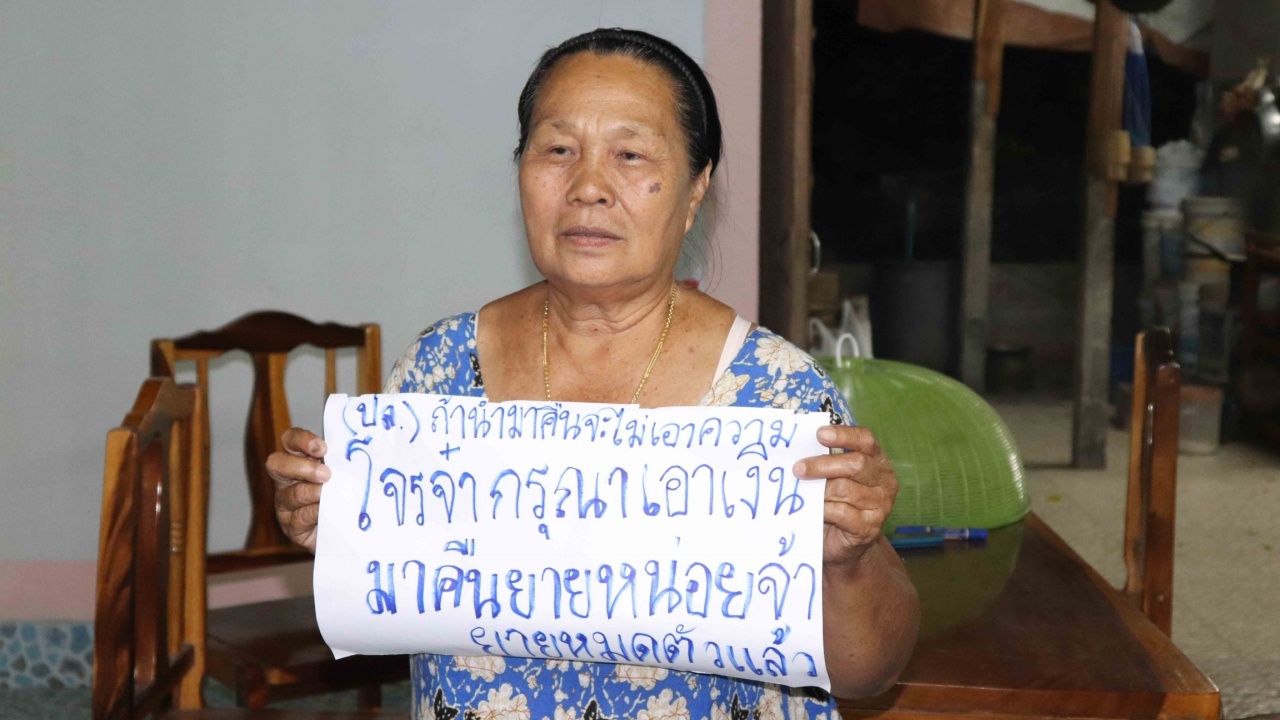 (ปล.) ถ้านำมาคืนจะไม่เอาความ
โจรจ๋า กรุณาเอาเงิน
มาคืนยายหน่อยจ้า
ยายหมดตัวแล้ว